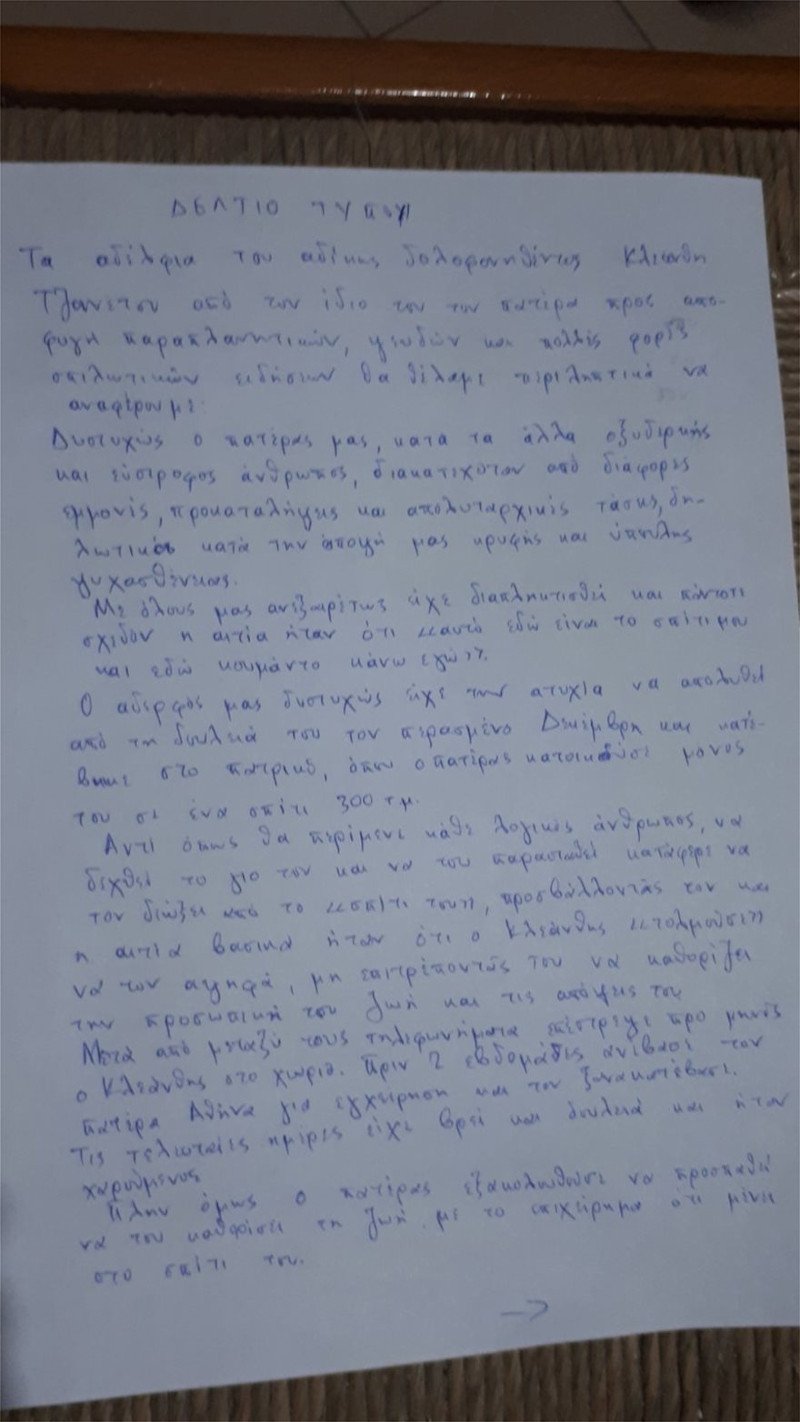 ΔΕΛΤΙΟ ΤΥΠΟΥ
Τα αδέλφια του αδίκως δολοφονηθέντος Κλεάνθη
Τζαννέτου από τον ίδιο του τον πατέρα προς απο-
φυγή παραπλανητικών, ψευδών και πολλές φορές
σπιλωτικών ειδήσεων θα θέλαμε περιληπτικά να
αναφέρουμε:
Δυστυχώς ο πατέρας μας, κατά τα άλλα οξυδερκής
και εύστροφος άνθρωπος, διακατεχόταν από διάφορες
εμμονές, προκαταλήψεις και απολυταρχικές τάσεις, δη-
λωτικές κατά την άποψή μας κρυφής και ύπουλης
ψυχασθένειας.
Με όλους μας ανεξαιρέτως είχε διαπληκτισθεί και πάντοτε
σχεδόν η αιτία ήταν ότι «αυτό εδώ είναι το σπίτι μου
και εδώ κουμάντο κάνω εγώ».
Ο αδερφός μας δυστυχώς είχε την ατυχία να απολυθεί
από τη δουλειά του τον περασμένο Δεκέμβρη και κατέ-
βηκε στο πατρικό, όπου ο πατέρας κατοικούσε μόνος
του σε ένα σπίτι 300 τ.μ.
Αντί όπως θα περίμενε κάθε λογικός άνθρωπος, να
δεχθεί το γιο του και να του παρασταθεί κατάφερε να
τον διώξει από το «σπίτι του», προσβάλλοντάς τον και
η αιτία βασικά ήταν ότι ο Κλεάνθης «τολμούσε»
να τον αψηφά, μη επιτρέποντάς του να καθορίζει
την προσωπική του ζωή και τις απόψεις του.
Μετά από μεταξύ τους τηλεφωνήματα επέστρεψε προ μηνός
ο Κλεάνθης στο χωριό. Πριν 2 εβδομάδες ανέβασε τον
πατέρα Αθήνα για εγχείρηση και τον ξανακατέβασε.
Τις τελευταίες ημέρες είχε βρει και δουλειά και ήταν
χαρούμενος.
Πλην όμως ο πατέρας εξακολουθούσε να προσπαθεί
να του καθορίσει τη ζωή, με το επιχείρημα ότι μένει
στο σπίτι του.
→